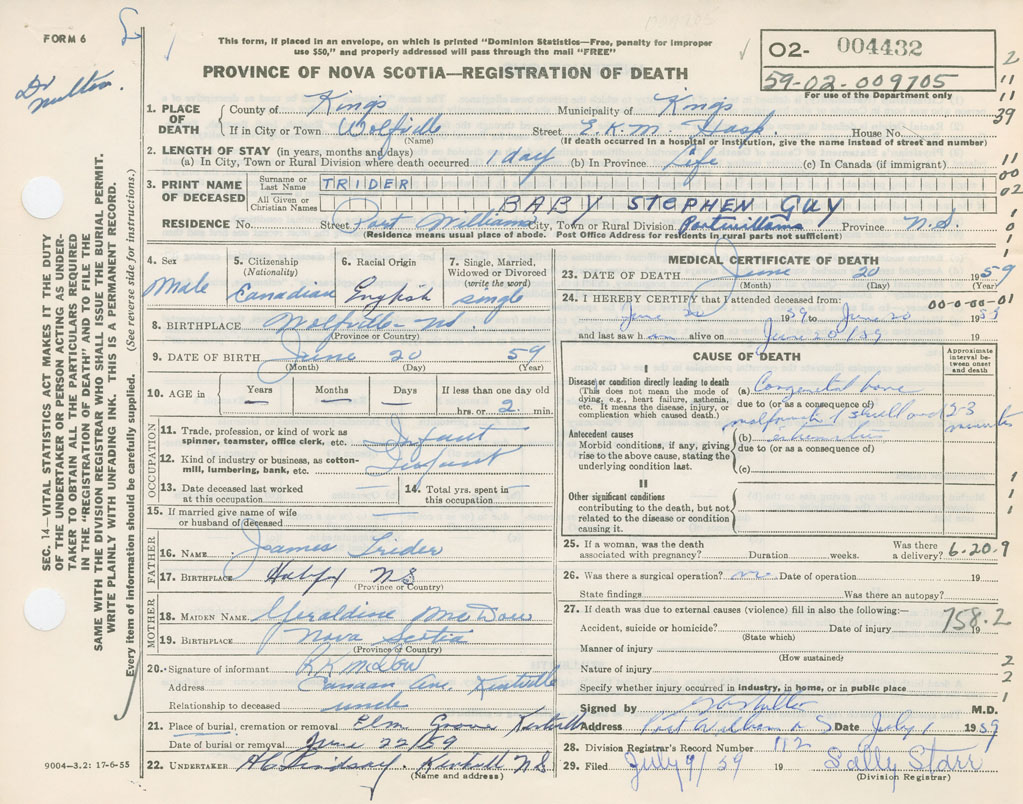 FORM 6
This form, if placed in an envelope, on which is printed "Dominion Statistics—Free, penalty for improper
use $50," and properly addressed will pass through the mail "FREE"
PROVINCE OF NOVA SCOTIA—REGISTRATION OF DEATH
02- 004432
59-02-009705
For use of the Department only
Dr
1. PLACE OF DEATH
County of Kings Municipality of Kings
If in City or Town Wolfville Street E.K.M. Hosp. House No.
(Name) (If death occurred in a hospital or institution, give the name instead of street and number)
2. LENGTH OF STAY (in years, months and days)
(a) In City, Town or Rural Division where death occurred 1 day (b) In Province Life (c) In Canada (if immigrant)
3. PRINT NAME OF DECEASED
Surname or Last Name TRIDER
All Given or Christian Names BABY STEPHEN GUY
RESIDENCE No. Street Port Williams City, Town or Rural Division Portwilliams Province N.S.
(Residence means usual place of abode. Post Office Address for residents in rural parts not sufficient)
4. Sex
Male
5. Citizenship
(Nationality)
Canadian
6. Racial Origin
English
7. Single, Married,
Widowed or Divorced
(write the word)
single
8. BIRTHPLACE Wolfville - NS.
(Province or Country)
9. DATE OF BIRTH June 20 59
(Month) (Day) (Year)
10. AGE in Years Months Days If less than one day old
hrs. or 2 min.
OCCUPATION
11. Trade, profession, or kind of work as
spinner, teamster, office clerk, etc. Infant
12. Kind of industry or business, as cotton-
mill, lumbering, bank, etc. Infant
13. Date deceased last worked
at this occupation
14. Total yrs. spent in
this occupation
15. If married give name of wife
or husband of deceased
FATHER
16. NAME James Trider
17. BIRTHPLACE NS
(Province or Country)
MOTHER
18. MAIDEN NAME Geraldine
19. BIRTHPLACE Nova Scotia
(Province or Country)
20. Signature of informant
Address Canaan Ave. Kentville
Relationship to deceased uncle
21. Place of burial, cremation or removal Elm Grove Kentville
Date of burial or removal June 22/59
22. UNDERTAKER Lindsay. Kentville NS
(Name and address)
MEDICAL CERTIFICATE OF DEATH
23. DATE OF DEATH June 20 1959
(Month) (Day) (Year)
24. I HEREBY CERTIFY that I attended deceased from: 00-0-00-01
June 20 1959 to June 20 19
and last saw h alive on June 20/59
CAUSE OF DEATH
Approximate interval between onset and death
I
Disease or condition directly leading to death
(This does not mean the mode of
dying, e.g., heart failure, asthenia,
etc. It means the disease, injury, or
complication which caused death.)
(a) Congenital bone
due to (or as a consequence of)
skull and
minutes
Antecedent causes
Morbid conditions, if any, giving
rise to the above cause, stating the
underlying condition last.
(b)
due to (or as a consequence of)
(c)
II
Other significant conditions
contributing to the death, but not
related to the disease or condition
causing it.
25. If a woman, was the death
associated with pregnancy? Duration weeks. Was there
a delivery? 6.20.9
26. Was there a surgical operation? no Date of operation 19
State findings Was there an autopsy?
27. If death was due to external causes (violence) fill in also the following:—
Accident, suicide or homicide? Date of injury 19
(State which)
758.2
Manner of injury
(How sustained)
Nature of injury
Specify whether injury occurred in industry, in home, or in public place
Signed by M.D.
Address Port Williams N S Date July 1 1959
28. Division Registrar's Record Number 112
29. Filed July 9/59 19 Sally Starr
(Division Registrar)
SEC. 14—VITAL STATISTICS ACT MAKES IT THE DUTY
OF THE UNDERTAKER OR PERSON ACTING AS UNDER-
TAKER TO OBTAIN ALL THE PARTICULARS REQUIRED
IN THE "REGISTRATION OF DEATH" AND TO FILE THE
SAME WITH THE DIVISION REGISTRAR WHO SHALL ISSUE THE BURIAL PERMIT.
WRITE PLAINLY WITH UNFADING INK. THIS IS A PERMANENT RECORD.
Every item of information should be carefully supplied. (See reverse side for instructions.)
9004-3.2: 17-6-55
2
11
11
39
11
00
02
1
0
1
1
1
1
2
2
1